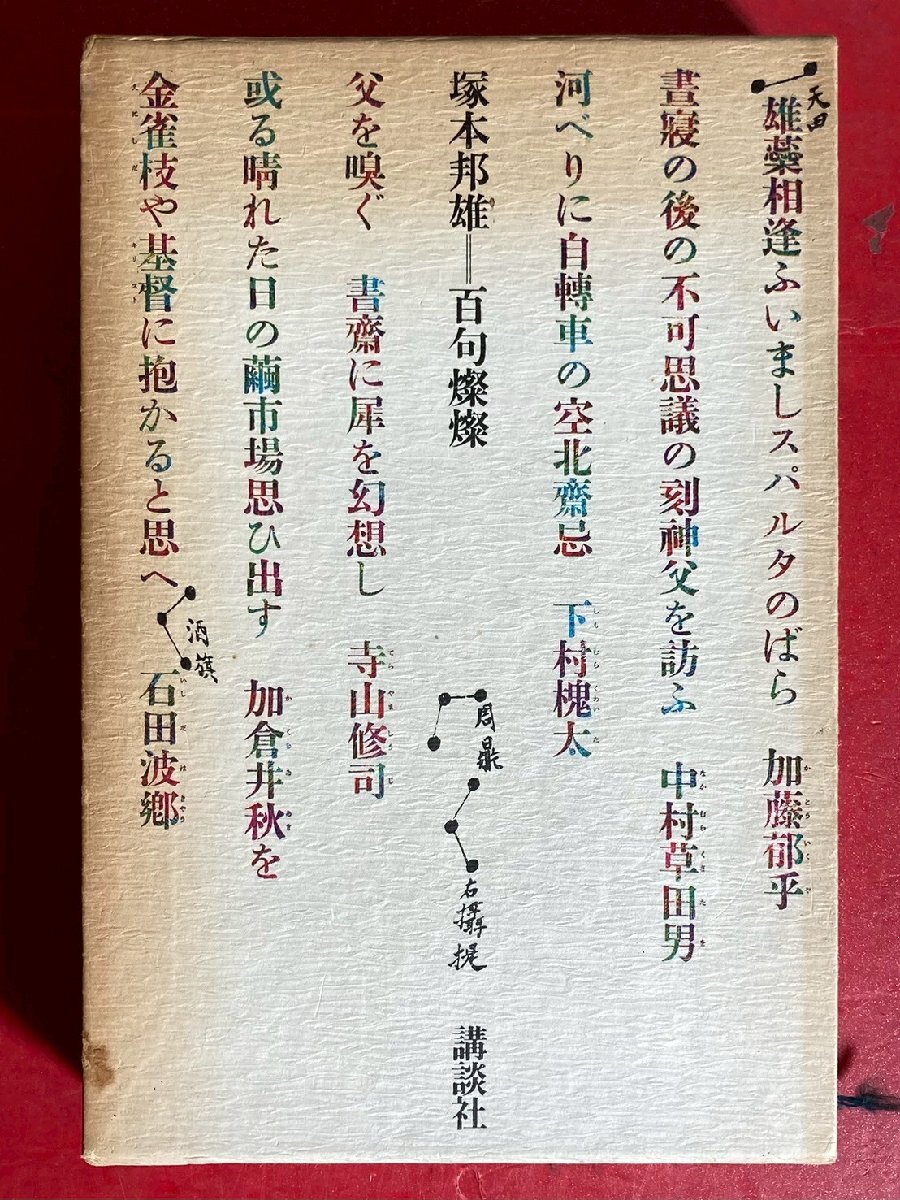 天田
雄蘂相逢ふいましスパルタのばら　加藤郁乎
晝寢の後の不可思議の刻神父を訪ふ　中村草田男
河べりに自轉車の空北齋忌　下村槐太
塚本邦雄＝百句燦燦
周鼎
右攝提
講談社
父を嗅ぐ　書齋に犀を幻想し　寺山修司
或る晴れた日の繭市場思ひ出す　加倉井秋を
金雀枝や基督に抱かると思へ　石田波鄕
酒旗